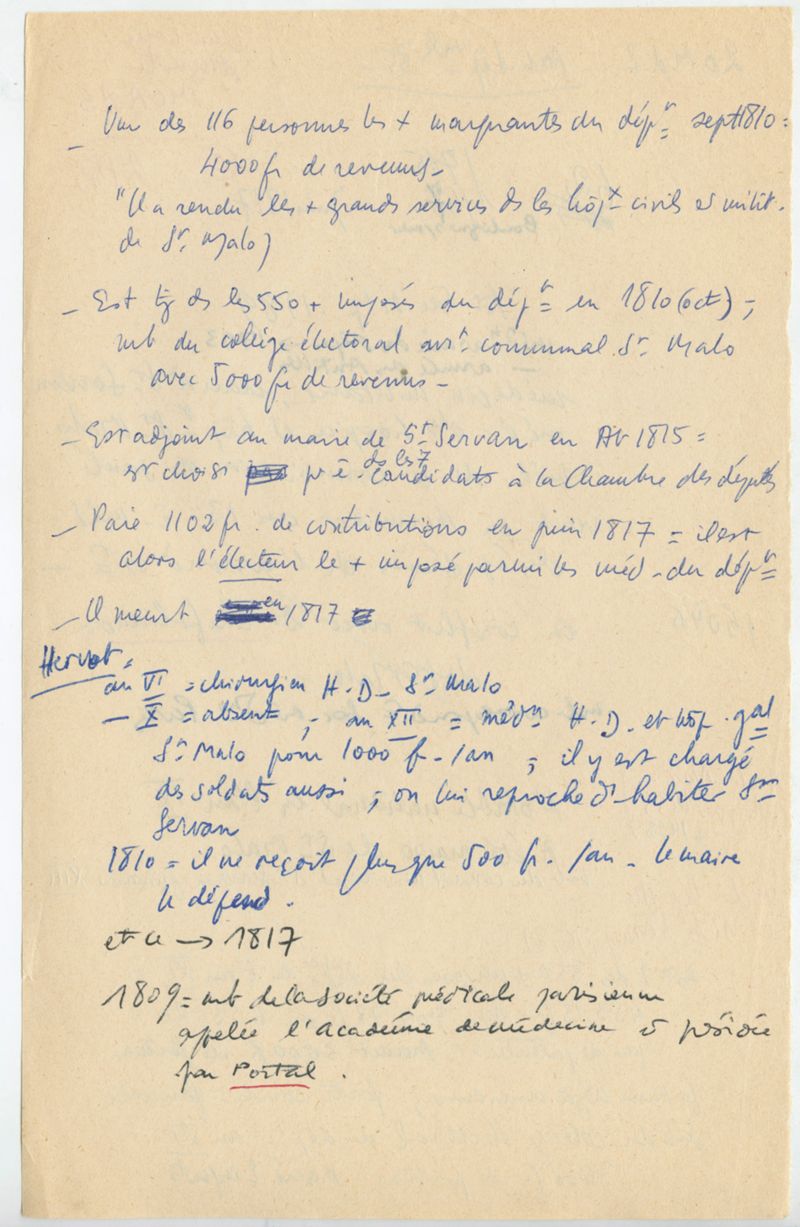 - Un des 116 personnes les + marquantes du dépt sept 1810 =
4000 fr de revenus -
"Il a rendu les + grands services ds les hôpx civils et milit.
de St Malo)
- Est tj ds les 550 + imposés du dépt en 1810 (oct) ;
mb du collège électoral communal St Malo
avec 5000 fr de revenus -
- Est adjoint au maire de St Servan en Av 1815 =
est choisi pr ê. ds les 7 candidats à la Chambre des députés
- Paie 1102 fr. de contributions en juin 1817 = il est
alors l'électeur le + imposé parmi les méd. du dépt
- Il meurt en 1817
Hervot =
an VI = chirurgien H.D. St Malo
- X = absent ; - an XII = médn H.D. et hôp. gal
St Malo pour 1000 f. /an ; il y est chargé
des soldats aussi ; on lui reproche d'habiter St
Servan
1810 = il ne reçoit plus que 500 fr. /an - le maire
le défend.
et ce → 1817
1809 = mb de la société médicale parisienne
appelée l'Académie de médecine et présidée
par Portal.